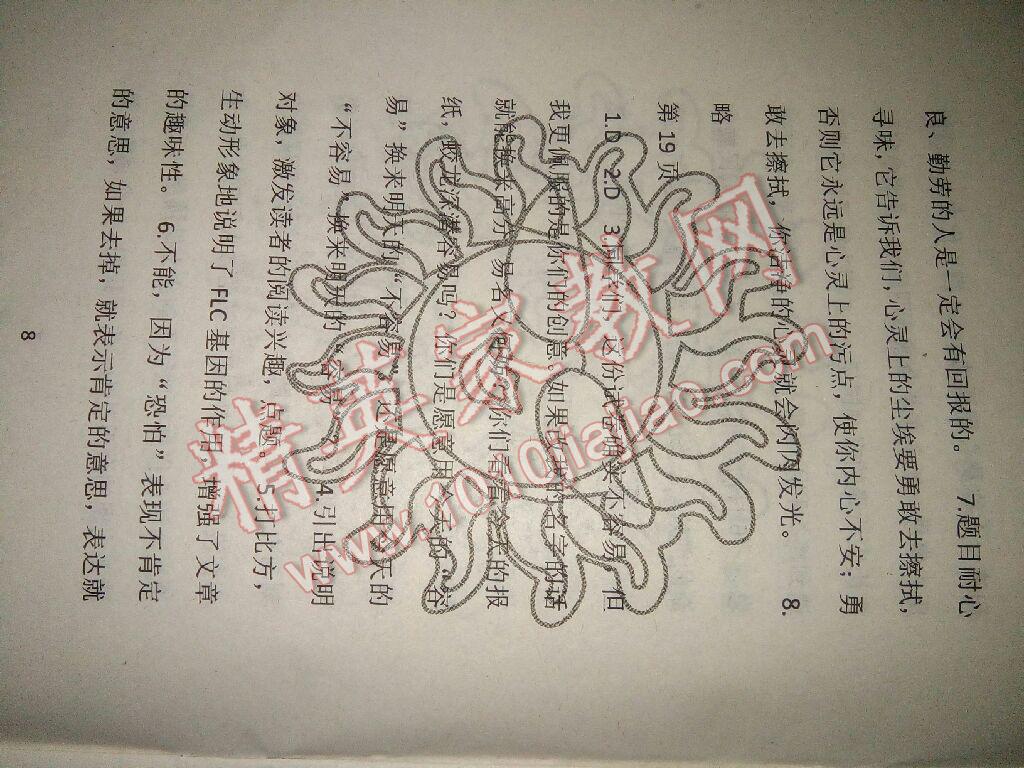 良、勤劳的人是一定会有回报的。 7.题目耐心
寻味，它告诉我们，心灵上的尘埃要勇敢去擦拭，
否则它永远是心灵上的污点，使你内心不安；勇
敢去擦拭，你洁净的心灵就会闪闪发光。 8.
略
第 19 页
1.D 2.D 3.同学们，这份试卷确实不容易，但
我更佩服的是你们的创意，如果更换的名字的话
就能换来高分，易名又何妨？你们看看冬天的报
纸，蛟龙深潜容易吗？你们是愿意用今天的“容
易”换来明天的“不容易”，还是愿意用今天的
“不容易”换来明天的“容易”？ 4.引出说明
对象，激发读者的阅读兴趣，点题。 5.打比方，
生动形象地说明了 FLC 基因的作用，增强了文章
的趣味性。 6.不能，因为“恐怕”表现不肯定
的意思，如果去掉，就表示肯定的意思，表达就
8
精英家教网
www.1010jiajiao.com